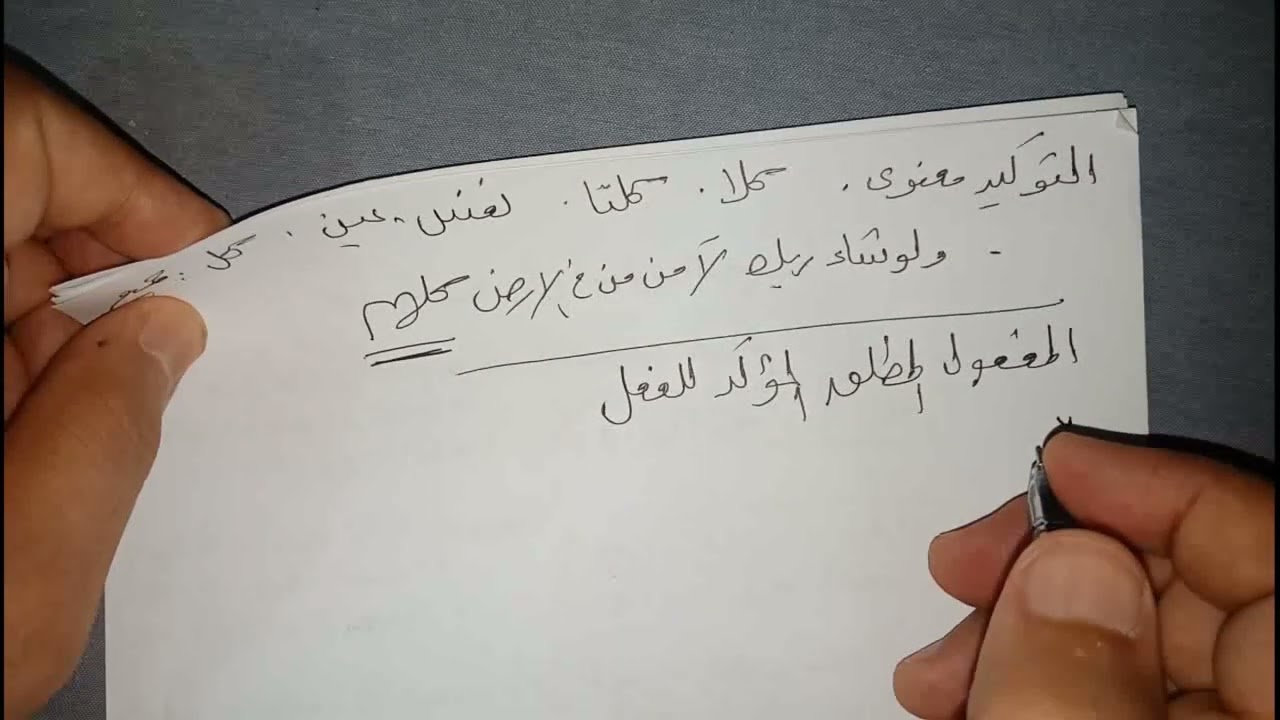 التوكيد معنوى . كلا . كلتا . نفس ، عين . كل : جميع
- ولو شاء ربك لآمن من في الارض كلهم
المفعول المطلق المؤكد للفعل